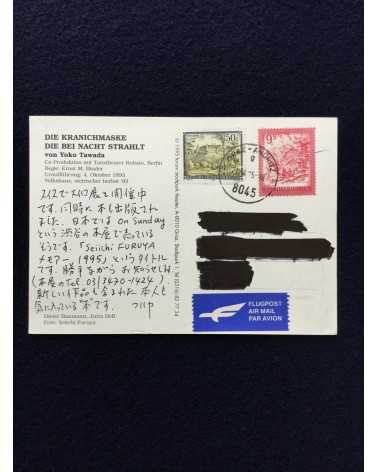 DIE KRANICHMASKE
DIE BEI NACHT STRAHLT
von Yoko Tawada
Co-Produktion mit Tanztheater Rubato, Berlin
Regie: Ernst M. Binder
Uraufführung: 4. Oktober 1993
Volkshaus, steirischer herbst '93
スイスでスイス展を開催中
です。同時に本も出版され
ました。日本では On Sunday
という渋谷の本屋で売っている
そうです。「Seiichi FURUYA
メモアール 1995」というタイトル
です。勝手ながらお知らせします。
(本屋のTel. 03/3470-1424)
新しい作品も含まれ本人も
気に入っている本です。
Foto: Seiichi Furuya
50g
9
8045
FLUGPOST
AIR MAIL
PAR AVION